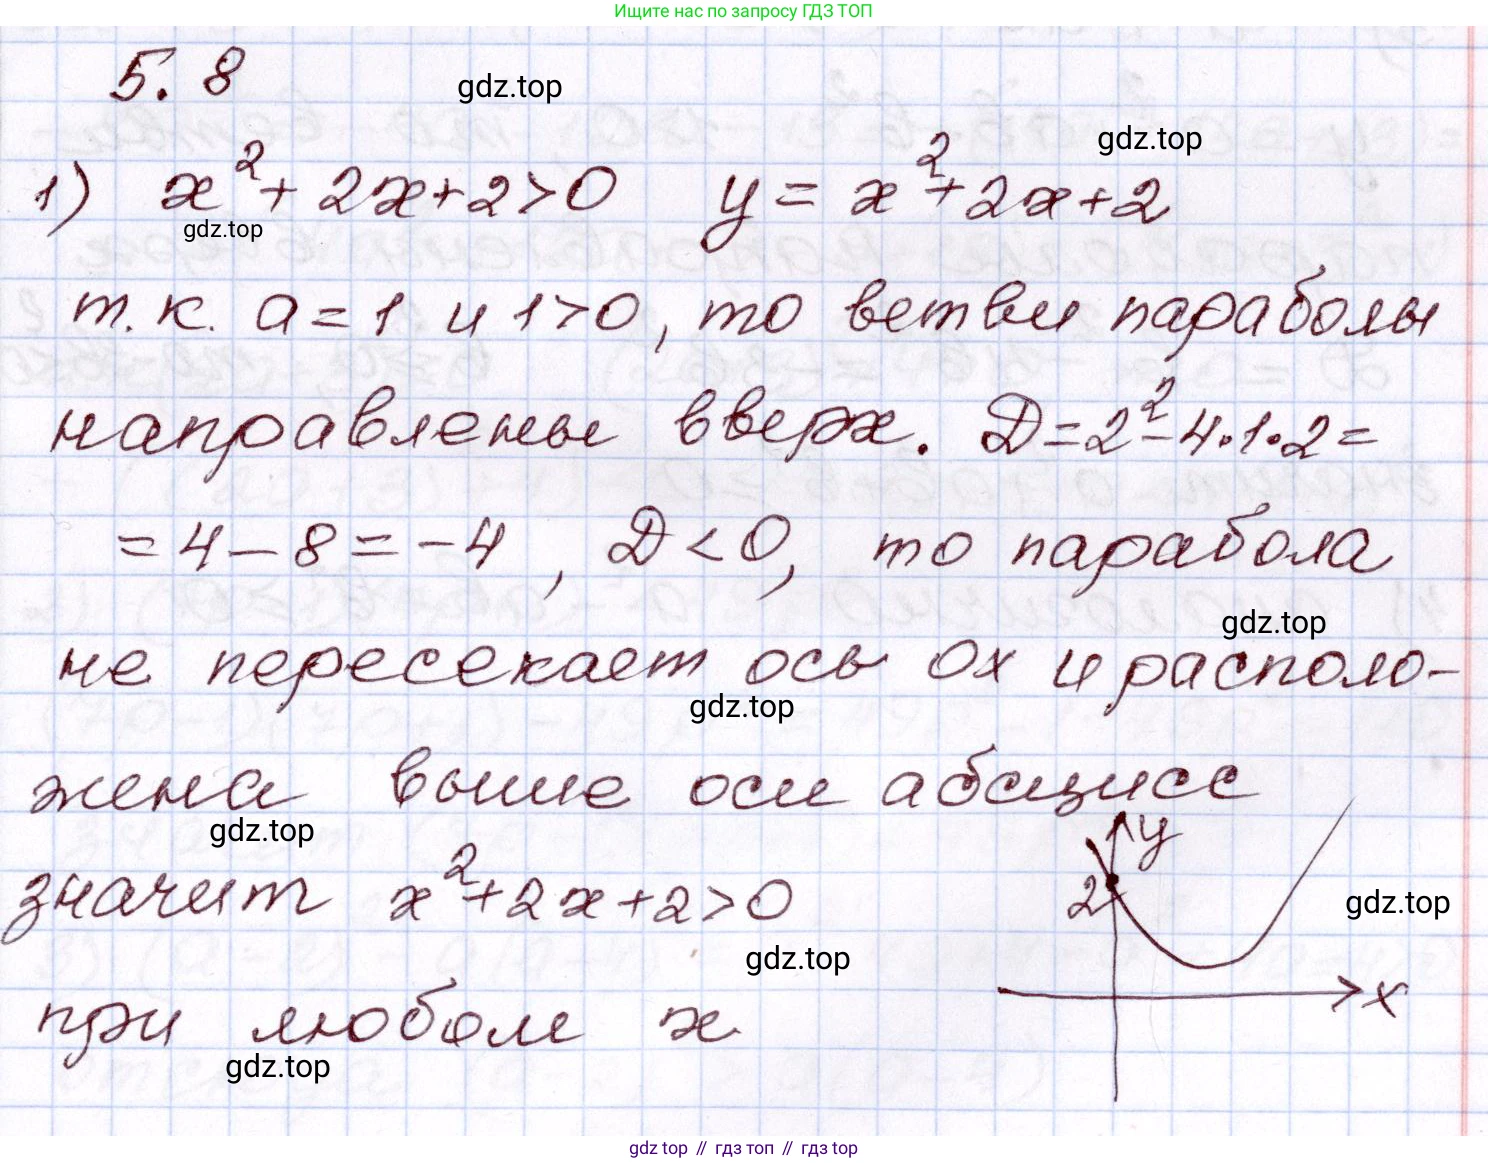 Ищите нас по запросу ГДЗ ТОП
5.8
gdz.top
gdz.top
1) x²+2x+2>0 y=x²+2x+2
gdz.top
т.к. a=1 и 1>0, то ветви параболы
направлены вверх. D=2²-4·1·2=
=4-8=-4, D<0, то парабола
gdz.top
не пересекает ось Ox и располо-
gdz.top
жена выше оси абсцисс
gdz.top
y
значит x²+2x+2>0
2
gdz.top
gdz.top
x
при любом x
gdz.top
gdz top // гдз топ // гдз top